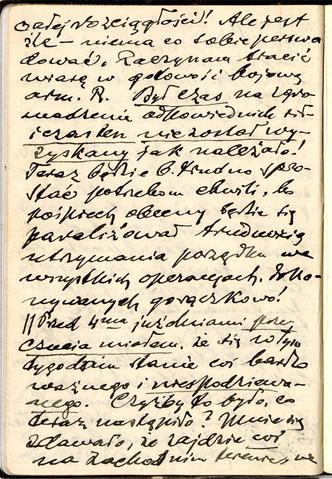 całej rozciągłości! Ale jest
źle – niema co sobie perswa
dować. Zaczynam tracić
wiarę w gotowość bojową
arm. R. Był czas na zgro
madzenie odpowiednich sił –
i czas ten nie został wy-
zyskany jak należało!
Teraz będzie b. trudno spro-
stać potrzebom chwili, bo
pośpiech obecny będzie się
paraliżował trudnością
utrzymania porządku we
wszystkich operacjach, doko-
nywanych gorączkowo!
|| Przed 4ma już dniami prze
czucia miałem, że się w tym
tygodniu stanie coś bardzo
ważnego i niespodziewa-
nego. Czyżby to było, co
teraz nastąpiło? Mnie się
zdawało, że zajdzie coś
na zachodnim